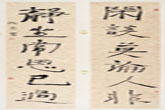 閑談莫論人非
靜坐常思己過